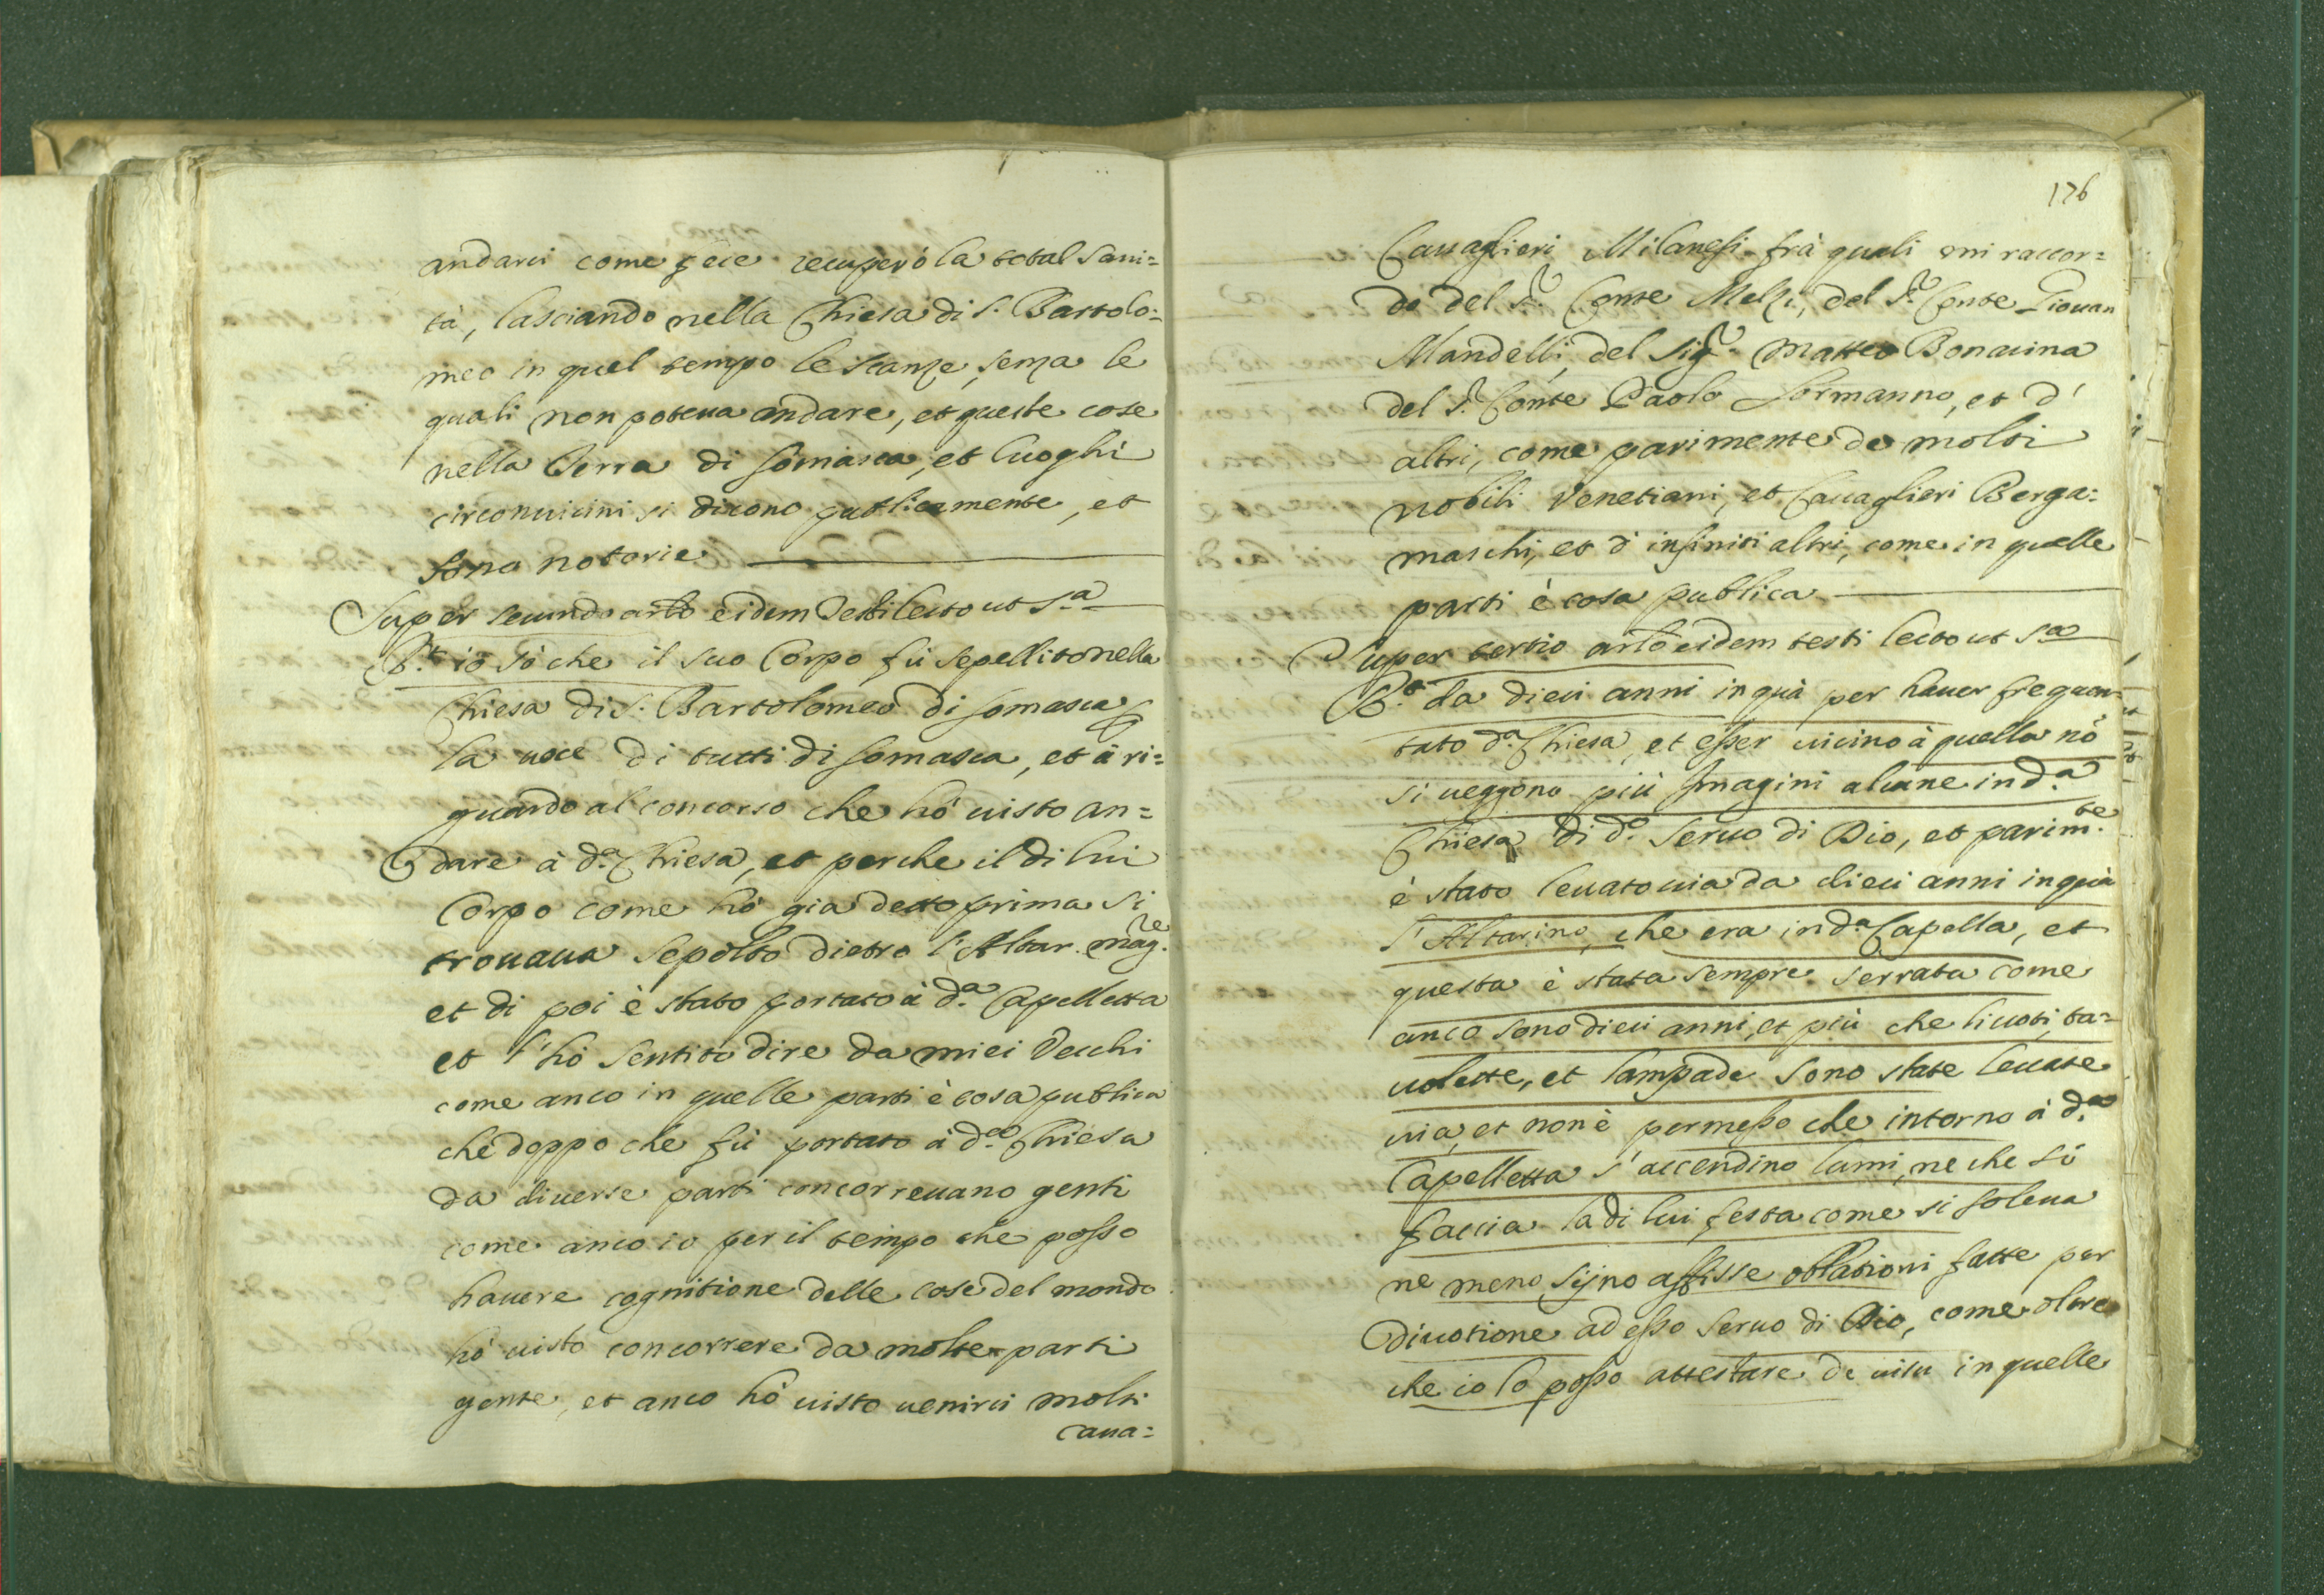 andarui come fece recuperò la total sani=
tà, lasciando nella Chiesa di S. Bartolo=
meo in quel tempo le scanze, senza le
quali non poteua andare, et queste cose
nella Terra di Somasca, et luoghi
circonuicini si dicono publicamente, et
sono notorie
Super secundo artō eidem Testi lecto ut s.ª
R.t io sò che il suo Corpo fù sepellito nella
Chiesa di S. Bartolomeo di Somasca
la uoce di tutti di Somasca, et à ri=
guardo al concorso che hò uisto an=
dare à d.ª Chiesa, et perche il di lui
Corpo come hò gia detto prima si
trouaua sepolto dietro l'Altar mag.re
et di poi è stato portato à d.ª Capelletta
et l'hò sentito dire da miei Vecchi
come anco in quelle parti è cosa publica
che doppo che fù portato à d.ª Chiesa
da diuerse parti concorreuano genti
come anco io per il tempo che posso
hauere cognitione delle cose del mondo
hò uisto concorrere da molte parti
gente, et anco hò uisto uenirui molti
Caua=
176
Cauaglieri Milanesi frà quali mi raccor=
do del S.r Conte Melzi, del S.r Conte Giouan
Mandelli, del Sig.r Matteo Bonacina
del S.r Conte Paolo Sormanno, et d'
altri, come parimente de molti
nobili Venetiani, et Cauaglieri Berga=
maschi, et d'infiniti altri, come in quelle
parti è cosa publica
Super tertio artō eidem testi lecto ut s.ª
R.t da dieci anni in quà per hauer frequen=
tato d.ª Chiesa, et esser uicino à quella nō
si ueggono più Imagini alcune in d.ª
Chiesa di d.º Seruo di Dio, et parim.te
è stato leuato uia da dieci anni in quà
l'Altarino, che era in d.ª Capella, et
questa è stata sempre serrata come
anco sono dieci anni, et più che li uoti, ta=
uolette, et lampade sono state leuate
uia, et non è permesso che intorno à d.ª
Capelletta s'accendino lumi, ne che si
faccia la di lui festa come si soleua
ne meno sijno affisse oblationi fatte per
diuotione ad esso Seruo di Dio, come oltre
che io lo posso attestare de uisu in quelle